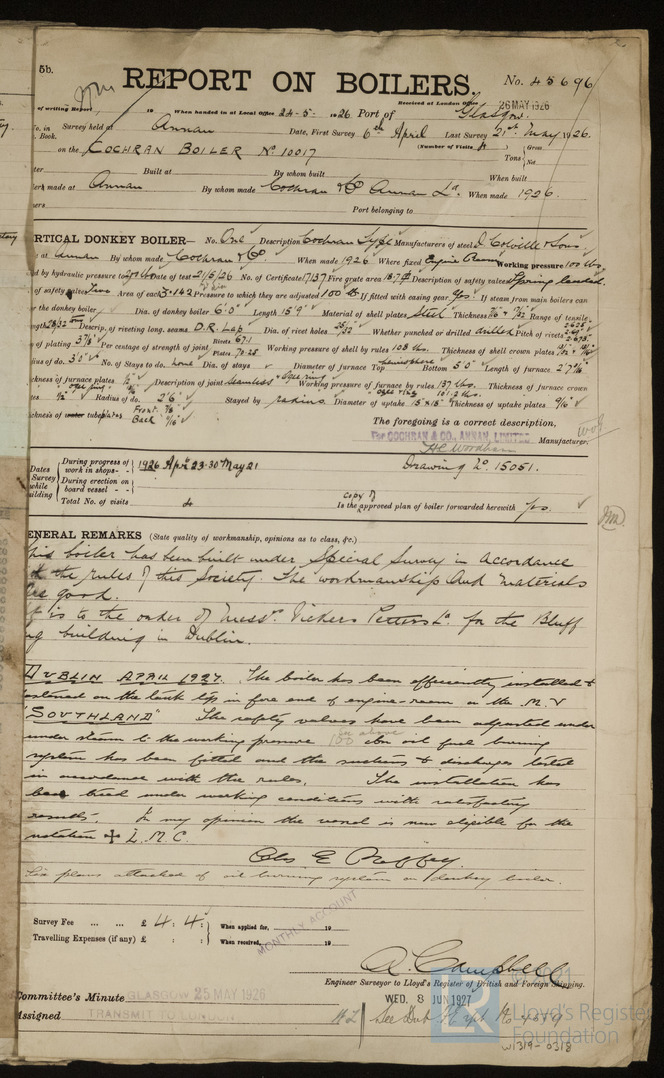 5b.
REPORT ON BOILERS.
No. 45696
Received at London Office 26 MAY 1926
of writing Report 19 When handed in at Local Office 24-5-1926 Port of Glasgow.
No. in Survey held at Annan Date, First Survey 6th April Last Survey 21st May 1926.
Book.
on the COCHRAN BOILER No 10017 (Number of Visits 4) Tons Gross Net
Built at By whom built When built
made at Annan By whom made Cochran & Co Annan Ld. When made 1926.
Port belonging to
RTICAL DONKEY BOILER— No. One Description Cochran Type Manufacturers of steel D. Colville & Sons.
at Annan By whom made Cochran & Co. When made 1926 Where fixed Engine Room Working pressure 100 lbs.
d by hydraulic pressure to 200 lbs Date of test 21/5/26 No. of Certificate 17137 Fire grate area Description of safety valves Spring loaded.
of safety valves Two Area of each 3.142 Pressure to which they are adjusted 100 lb. If fitted with easing gear Yes. If steam from main boilers can
the donkey boiler Dia. of donkey boiler 6'0" Length 15'9" Material of shell plates Steel Thickness Range of tensile
Descrip. of riveting long. seams D.R. Lap Dia. of rivet holes Whether punched or drilled drilled Pitch of rivets
of plating 3 7/8" Per centage of strength of joint Rivets 67.1 Plates 70.25 Working pressure of shell by rules 108 lbs. Thickness of shell crown plates
dius of do. 3'0" No. of Stays to do. none Dia. of stays Diameter of furnace Top hemisphere Bottom 5'0" Length of furnace 2'7"
ickness of furnace plates Description of joint Seamless Working pressure of furnace by rules 137 lbs. Thickness of furnace crown
tes Radius of do. 2'6" Stayed by Diameter of uptake 15" x 15" Thickness of uptake plates 9/16"
ickness of water tubes plates. Front Back
The foregoing is a correct description,
For COCHRAN & CO., ANNAN, LIMITED Manufacturer.
Drawing No. 15051.
Dates Survey while building
During progress of work in shops - - 1926 Apr. 23.30 May 21
During erection on board vessel - - -
Total No. of visits 4
Is the copy of approved plan of boiler forwarded herewith Yes.
ENERAL REMARKS (State quality of workmanship, opinions as to class, &c.)
This boiler has been built under Special Survey in accordance
with the rules of this Society. The workmanship and materials
are good.
It is to the order of Messrs. Vickers Petters Ld. for the Bluff
building in Dublin.
DUBLIN APRIL 1927. The boiler has been efficiently installed &
fastened on the tank top in fore end of engine-room in the M.V
"SOUTHLAND" The safety valves have been adjusted under
under steam to the working pressure 100 lbs an oil fuel burning
system has been fitted and the suctions & discharges tested
in accordance with the rules. The installation has
been tried under working conditions with satisfactory
results. In my opinion the vessel is now eligible for the
notation ✠ L.M.C.
Six plans attached of oil burning system on donkey boiler.
Survey Fee ... ... £ 4 : 4 : When applied for, 19
Travelling Expenses (if any) £ : : When received, 19
MONTHLY ACCOUNT
A. Campbell
Engineer Surveyor to Lloyd's Register of British and Foreign Shipping.
Committee's Minute GLASGOW 25 MAY 1926
WED. 8 JUN 1927
Assigned TRANSMIT TO LONDON
Lloyd's Register
Foundation
W1319-0318